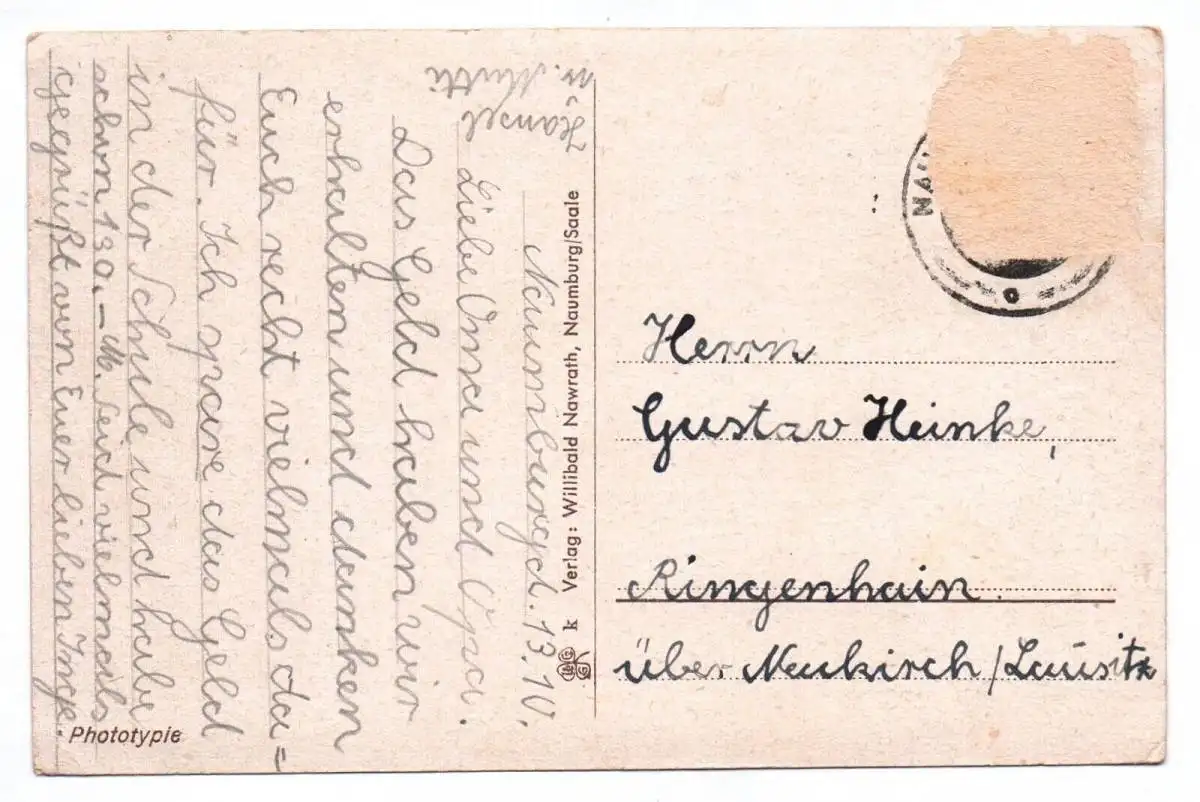 Naumburg d. 13.10.
Liebe Oma und Opa.
Das Geld haben wir
erhalten und danken
Euch recht vielmals da=
für. Ich spare das Geld
in der Schule und habe
schon 130.- M. Seid vielmals
gegrüßt von Eurer lieben Inge
Hansel
u. Mutti
Phototypie
k Verlag: Willibald Nawrath, Naumburg/Saale
NAU
a
Herrn
Gustav Heinke,
Ringenhain.
über Neukirch/Lausitz